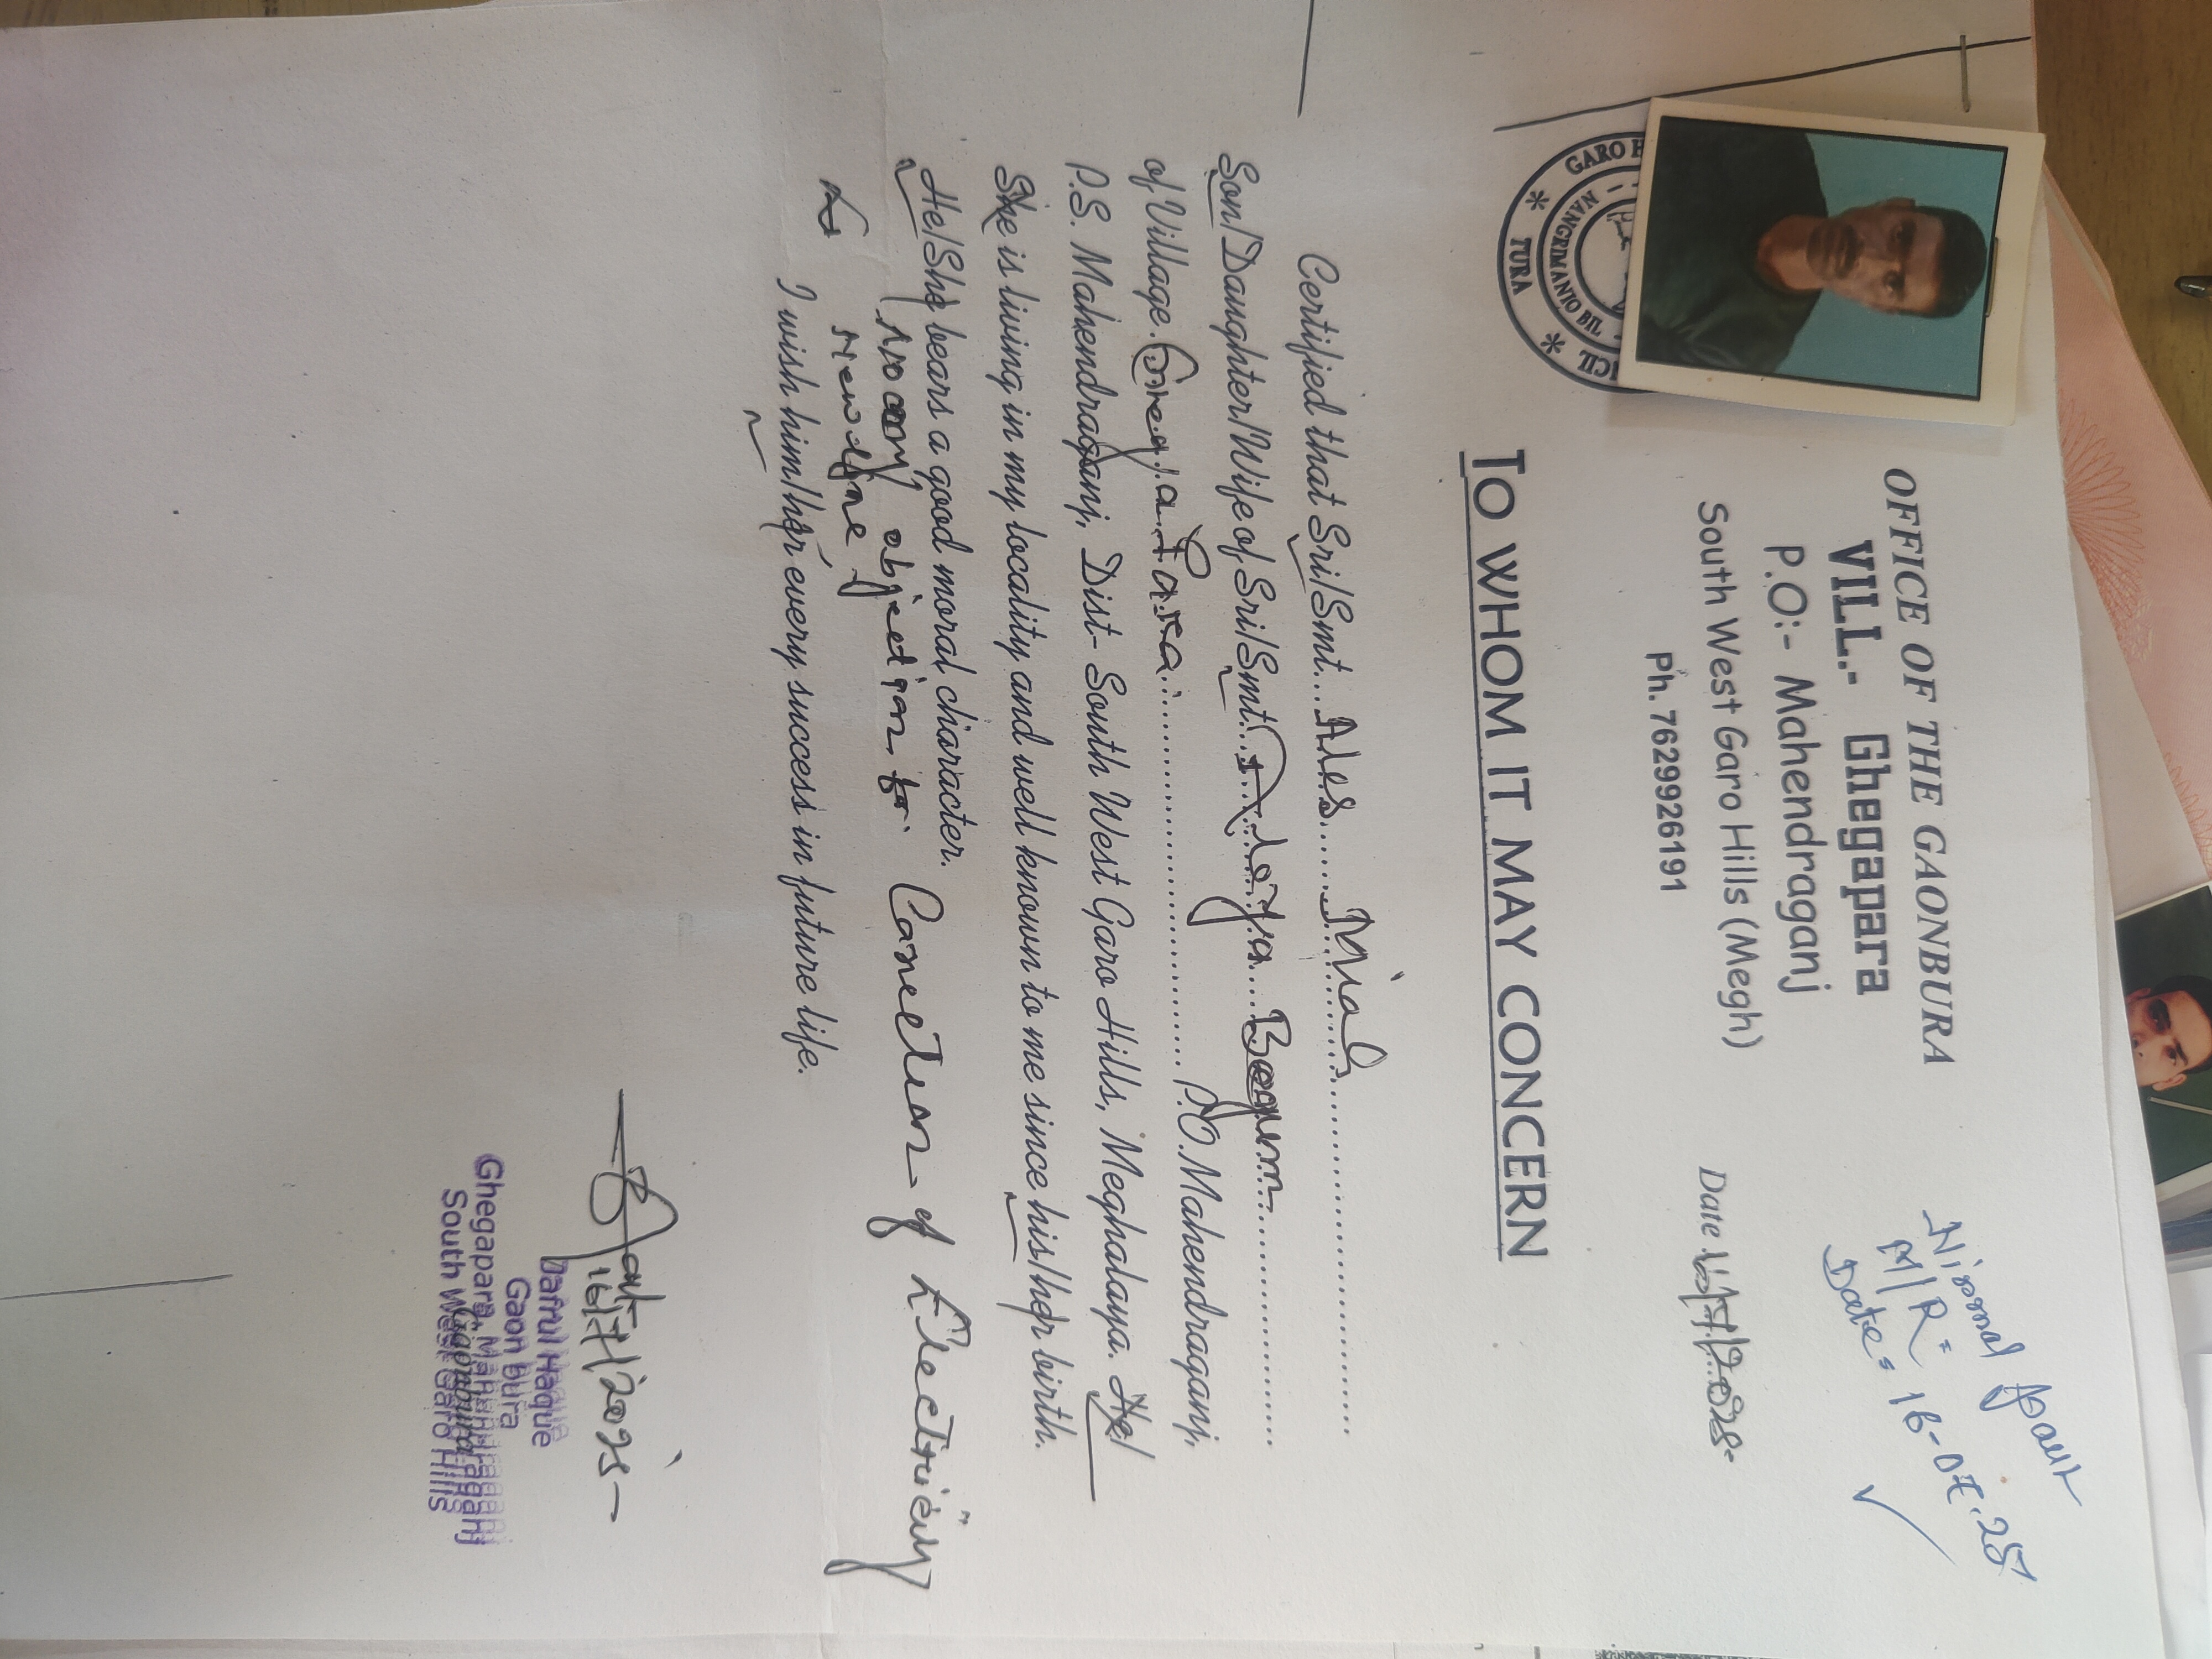 OFFICE OF THE GAONBURA
VILL.- Ghegapara
P.O:- Mahendraganj
South West Garo Hills (Megh)
Ph. 7629926191
Nirmal
M/R =
Date = 16-07-25
GARO H
CIL
NANGRIMANIO BIL
TURA
Date 16/7/2025
TO WHOM IT MAY CONCERN
Certified that Sri/Smt... Ales ...... Miah
Son/Daughter/Wife of Sri/Smt. Begum
of Village. Ghegapara P.O. Mahendraganj,
P.S. Mahendraganj, Dist- South West Garo Hills, Meghalaya. He/
She is living in my locality and well known to me since his/her birth.
He/She bears a good moral character.
no any objection for Conection of Electricity
New line
I wish him/her every success in future life.
16/7/2025
Dafrul Haque
Gaon bura
Ghegapara, Mahendraganj
South West Garo Hills